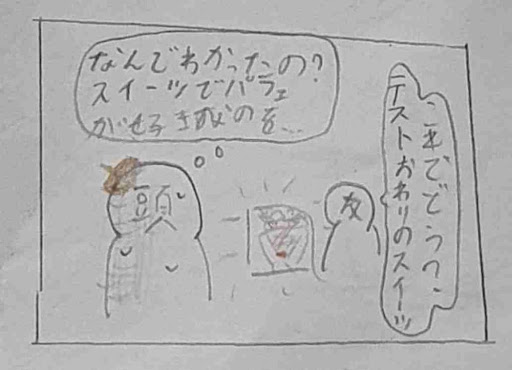 これでどう?
テストおわりのスイーツ
友
なんでわかったの?
スイーツでパフェ
が好きなのを…
頭